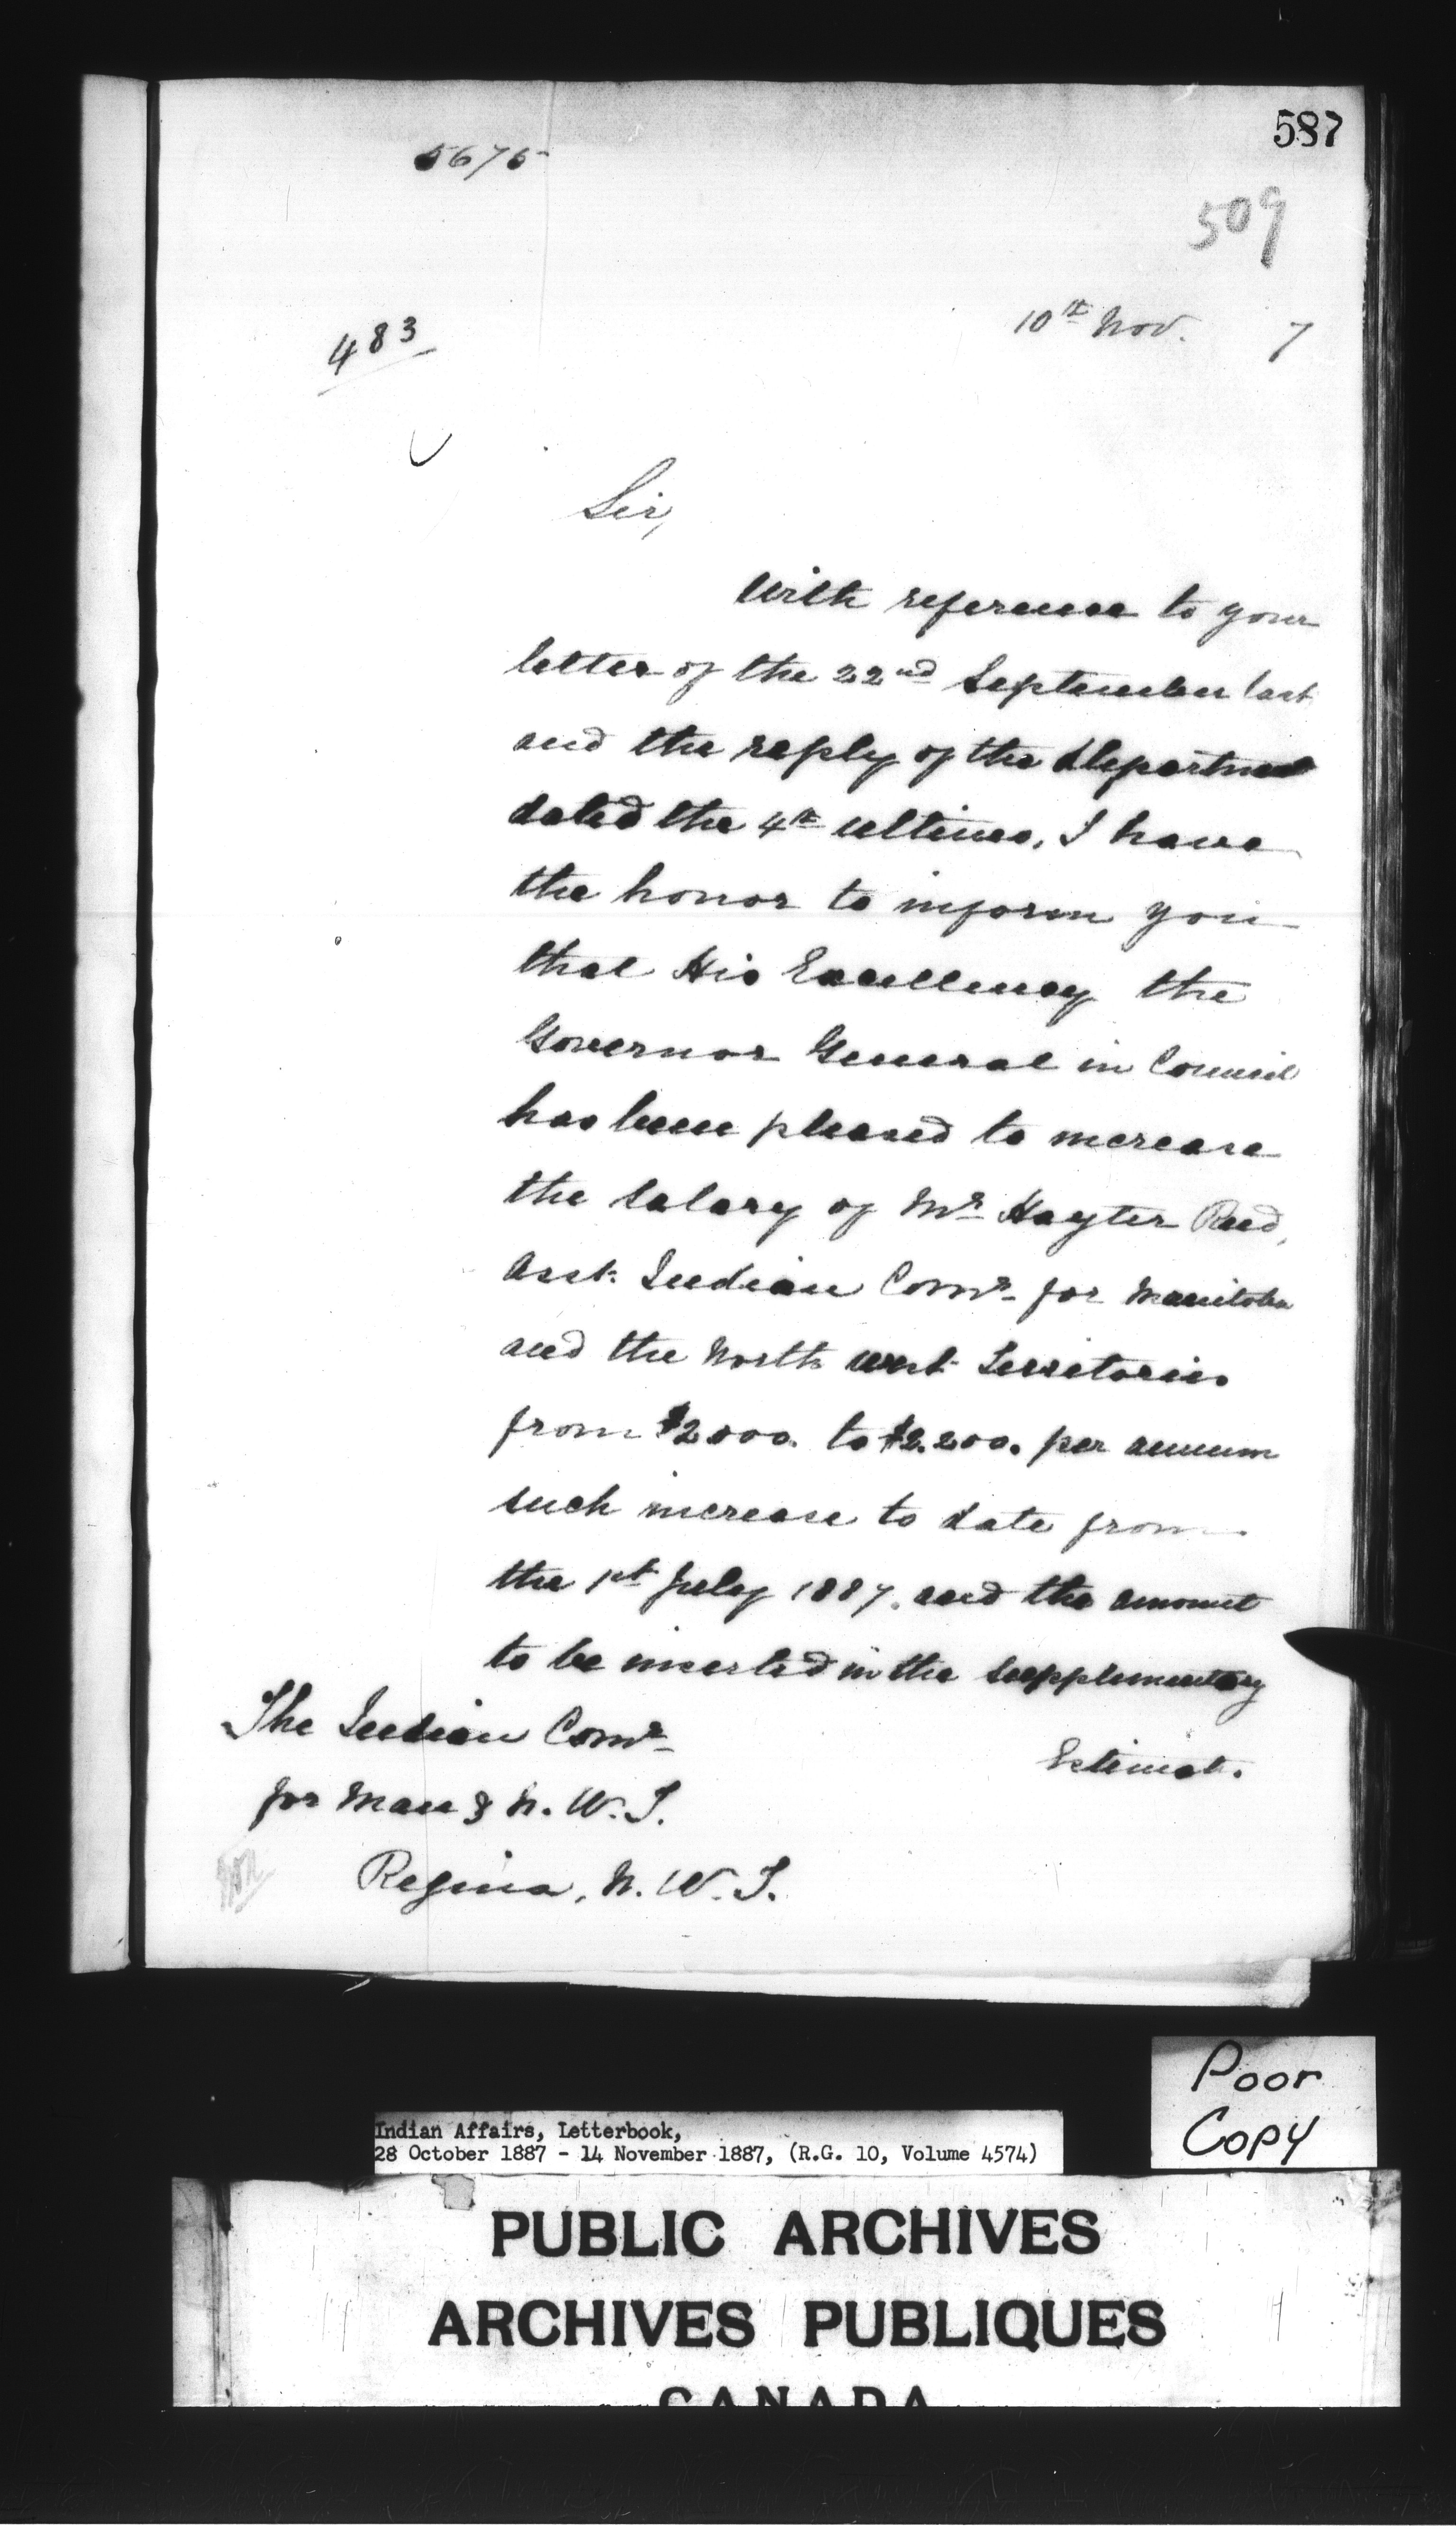 587
5675
509
483
10th Nov. 7
Sir,
With reference to your
letter of the 22nd September last
and the reply of the Department
dated the 4th ultimo, I have
the honor to inform you
that His Excellency the
Governor General in Council
has been pleased to increase
the salary of Mr Hayter Reed,
Asst. Indian Comr. for Manitoba
and the North West Territories
from $2.000. to $2.200. per annum
such increase to date from
the 1st July 1887. and the amount
to be inserted in the supplementary
Estimate.
The Indian Comr.
for Man & N. W. T.
Regina, N. W. T.
Poor
Copy
Indian Affairs, Letterbook,
28 October 1887 - 14 November 1887, (R.G. 10, Volume 4574)
PUBLIC ARCHIVES
ARCHIVES PUBLIQUES
CANADA